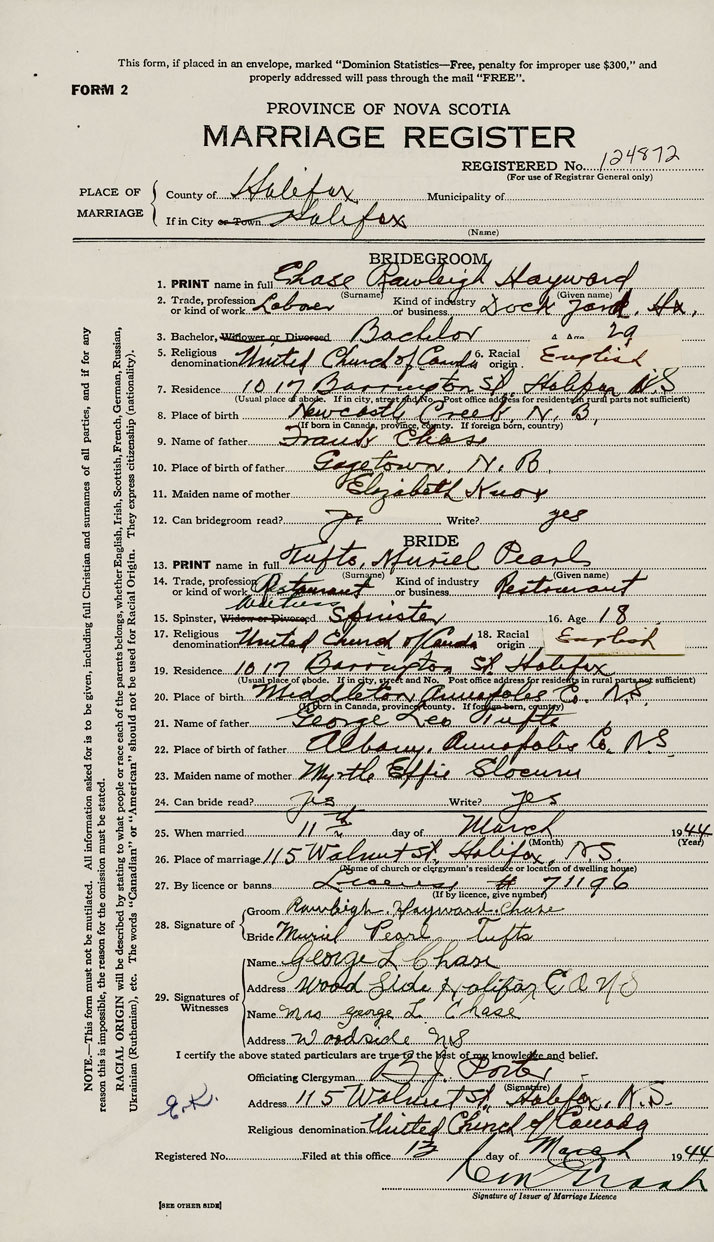 This form, if placed in an envelope, marked "Dominion Statistics—Free, penalty for improper use $300," and
properly addressed will pass through the mail "FREE".
FORM 2
PROVINCE OF NOVA SCOTIA
MARRIAGE REGISTER
REGISTERED No. 124872
(For use of Registrar General only)
PLACE OF MARRIAGE
County of Halifax Municipality of
If in City or Town Halifax
(Name)
BRIDEGROOM
1. PRINT name in full Chase Rawleigh Hayward
(Surname) (Given name)
2. Trade, profession or kind of work Laborer Kind of industry or business Dock Yard, Hx.
3. Bachelor, Widower or Divorced Bachelor 4. Age 29
5. Religious denomination United Church of Canada 6. Racial origin English
7. Residence 1017 Barrington St, Halifax N.S
(Usual place of abode. If in city, street and No. Post office address for residents in rural parts not sufficient)
8. Place of birth Newcastle Creek, N. B,
(If born in Canada, province, county. If foreign born, country)
9. Name of father Frank Chase
10. Place of birth of father Gagetown, N. B.
11. Maiden name of mother Elizabeth Knox
12. Can bridegroom read? yes Write? yes
BRIDE
13. PRINT name in full Tufts, Muriel Pearl
(Surname) (Given name)
14. Trade, profession or kind of work Restaurant Waitress Kind of industry or business Restaurant
15. Spinster, Widow or Divorced Spinster 16. Age 18
17. Religious denomination United Church of Canada 18. Racial origin English
19. Residence 1017 Barrington St Halifax
(Usual place of abode. If in city, street and No. Post office address for residents in rural parts not sufficient)
20. Place of birth Middleton Annapoles Co. N.S.
(If born in Canada, province, county. If foreign born, country)
21. Name of father George Leo Tufts
22. Place of birth of father Albany, Annapoles Co. N.S
23. Maiden name of mother Myrtle Effie Slocum
24. Can bride read? yes Write? yes
25. When married 11th day of March 1944
(Month) (Year)
26. Place of marriage 115 Walnut St, Halifax, N.S.
(Name of church or clergyman's residence or location of dwelling house)
27. By licence or banns License # 71196
(If by licence, give number)
28. Signature of
Groom Rawleigh. Hayward. Chase
Bride Muriel Pearl Tufts
29. Signatures of Witnesses
Name George L Chase
Address Wood Side Halifax C O N S
Name Mrs george L Chase
Address Woodside NS
I certify the above stated particulars are true to the best of my knowledge and belief.
Officiating Clergyman B J. Porter
(Signature)
Address 115 Walnut St, Halifax, N.S.
Religious denomination United Church of Canada
Registered No. Filed at this office 13 day of March 1944
Signature of Issuer of Marriage Licence
[SEE OTHER SIDE]
E.K.
NOTE.—This form must not be mutilated. All information asked for is to be given, including full Christian and surnames of all parties, and if for any
reason this is impossible, the reason for the omission must be stated.
RACIAL ORIGIN will be described by stating to what people or race each of the parents belongs, whether English, Irish, Scottish, French, German, Russian,
Ukrainian (Ruthenian), etc. The words "Canadian" or "American" should not be used for Racial Origin. They express citizenship (nationality).